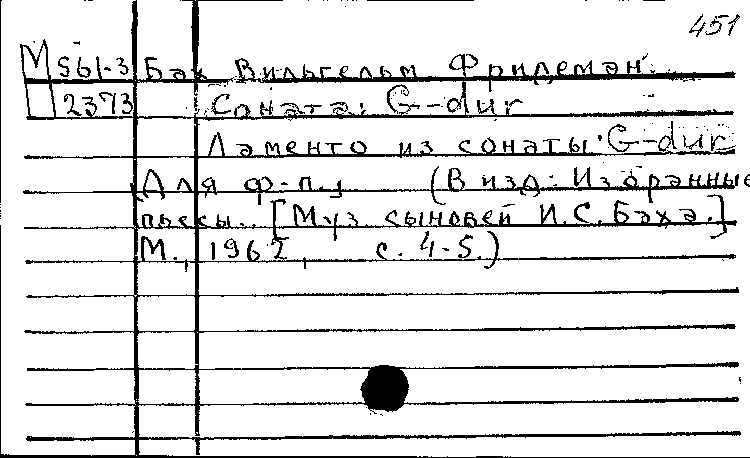 451
М 561-3 Бах Вильгельм Фридеман.
2373 Соната: G-dur
Ламенто из сонаты G-dur
(Для ф-п.) (В изд: Избранные
пьесы.. [Муз сыновей И.С.Баха.]
М., 1962, с. 4-5.)